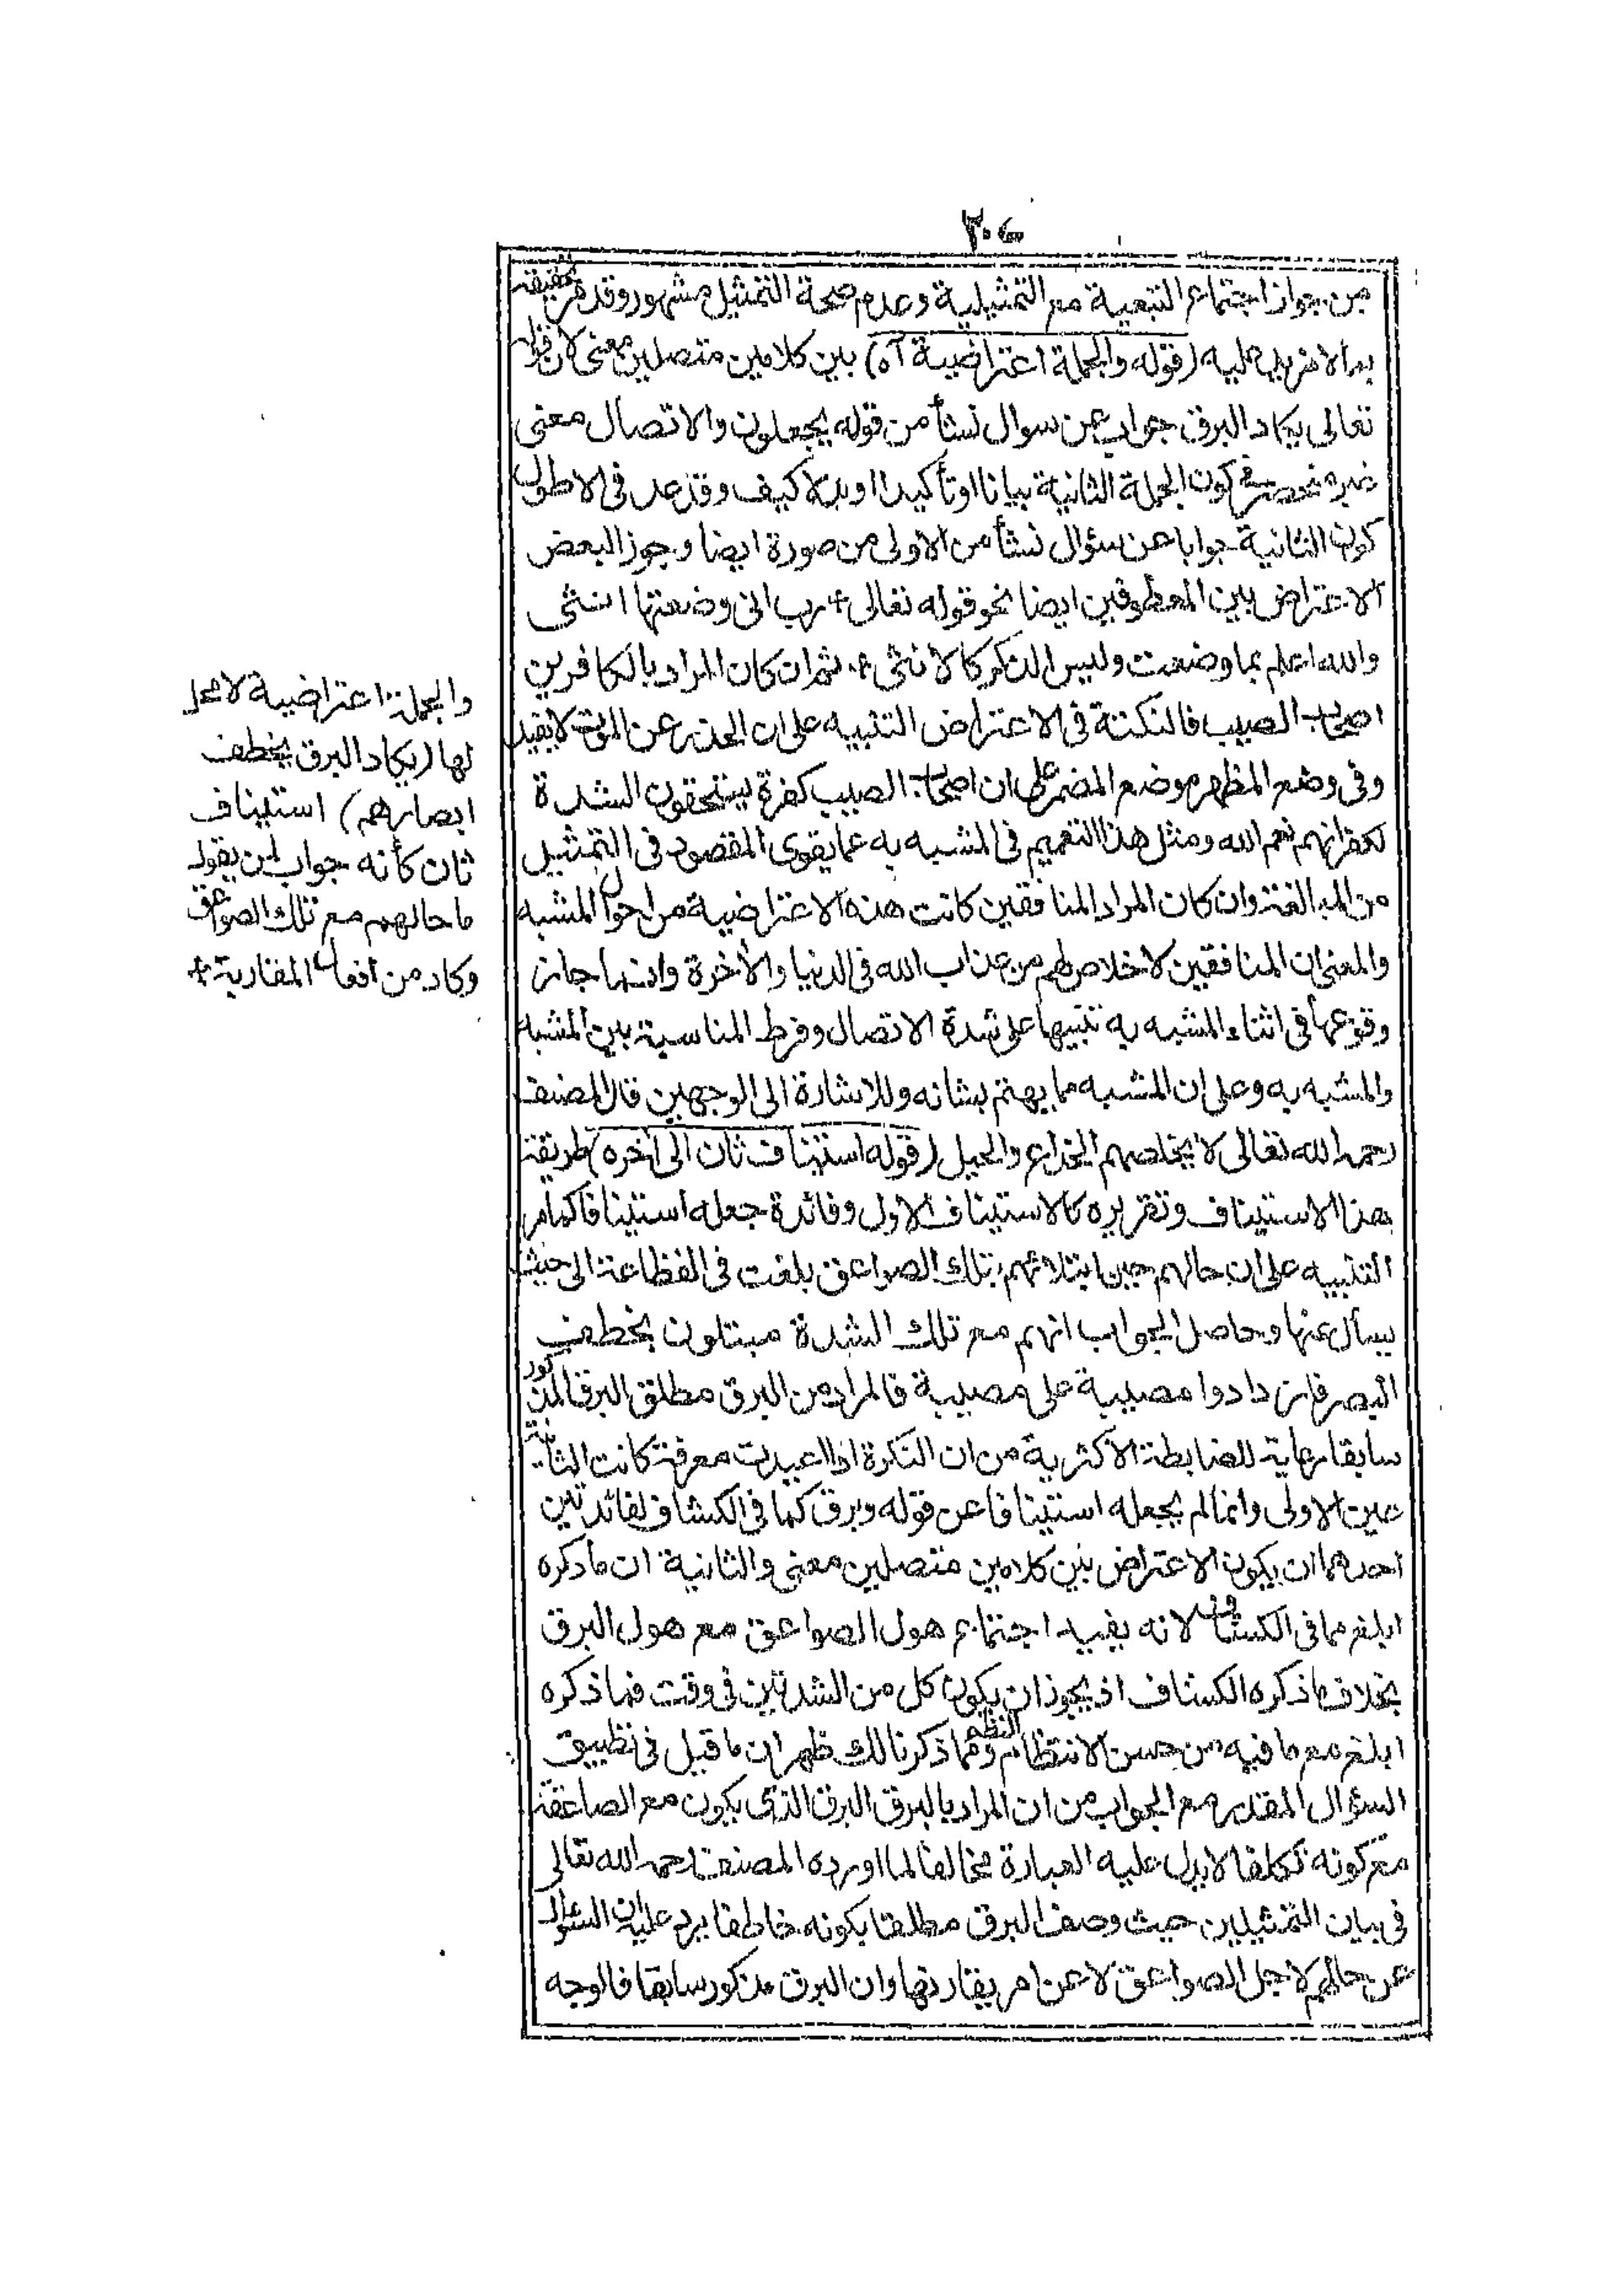 ٢٠٤
من جواز اجتماع التبعية مع التمثيلية وعدم صحة التمثيل مشهور وقد مر تحقيقه
بما لا مزيد عليه (قوله والجملة اعتراضية آه) بين كلامين متصلين معنى لان قوله
تعالى يكاد البرق جواب عن سوال نشأ من قوله يجعلون والاتصال معنى
غير منحصر في كون الجملة الثانية بيانا او تأكيدا او بدلا كيف وقد عد فى الاطول
كون الثانية جوابا عن سؤال نشأ من الاولى من صورة ايضا وجوز البعض
الاعتراض بين المعطوفين ايضا نحو قوله تعالى * رب انى وضعتها انثى
والله اعلم بما وضعت وليس الذكر كالانثى * ثم ان كان المراد بالكافرين
اصحاب الصيب فالنكتة فى الاعتراض التنبيه على ان الحذر عن الموت لا يفيد
وفى وضع المظهر موضع المضمر على ان اصحاب الصيب كفرة ليستحقون الشدة
لكفرانهم نعم الله ومثل هذا التعميم فى المشبه به مما يقوى المقصود فى التمثيل
من المبالغة وان كان المراد المنافقين كانت هذه الاعتراضية من احوال المشبه
والمعنى ان المنافقين لاخلاص لهم من عذاب الله فى الدنيا والأخرة وانما جاز
وقوعها فى اثناء المشبه به تنبيها على شدة الاتصال وفرط المناسبة بين المشبه
والمشبه به وعلى ان المشبه مما يهتم بشانه وللاشارة الى الوجهين قال المصنف
رحمه الله تعالى لا يخلصهم الخداع والحيل (قوله استيناف ثان الى آخره) طريقة
هذا الاستيناف وتقريره كالاستيناف الاول وفائدة جعله استينافا كما مر
التنبيه على ان حالهم حين ابتلائهم بتلك الصواعق بلغت فى الفظاعة الى حيث
يسأل عنها وحاصل الجواب انهم مع تلك الشدة مبتلون بخطف
البصر فازدادوا مصيبة على مصيبة فالمراد من البرق مطلق البرق المذكور
سابقا رعاية للضابطة الاكثرية من ان النكرة اذا اعيدت معرفة كانت الثانية
عين الاولى وانما لم يجعله استينافا عن قوله وبرق كما فى الكشاف لفائدتين
احدهما ان يكون الاعتراض بين كلامين متصلين معنى والثانية ان ما ذكره
ابلغ مما فى الكشاف لانه يفيد اجتماع هول الصواعق مع هول البرق
بخلاف ما ذكره الكشاف اذ يجوز ان يكون كل من الشدتين فى وقت فما ذكره
ابلغ مع ما فيه من حسن الانتظام النظم ومما ذكرنا لك ظهر ان ما قيل فى تطبيق
السؤال المقدر مع الجواب من ان المراد بالبرق البرق الذى يكون مع الصاعقة
مع كونه تكلفا لا يدل عليه العبارة مخالف لما اورده المصنف رحمه الله تعالى
فى بيان التمثيلين حيث وصف البرق مطلقا بكونه خاطفا يرد عليه ان السؤال
عن حالهم لاجل الصواعق لا عن امر يقارنها وان البرق مذكور سابقا فالوجه
والجملة اعتراضية لا محل
لها (يكاد البرق يخطف
ابصارهم) استيناف
ثان كأنه جواب لمن يقول
ما حالهم مع تلك الصواعق
وكاد من افعال المقاربة *